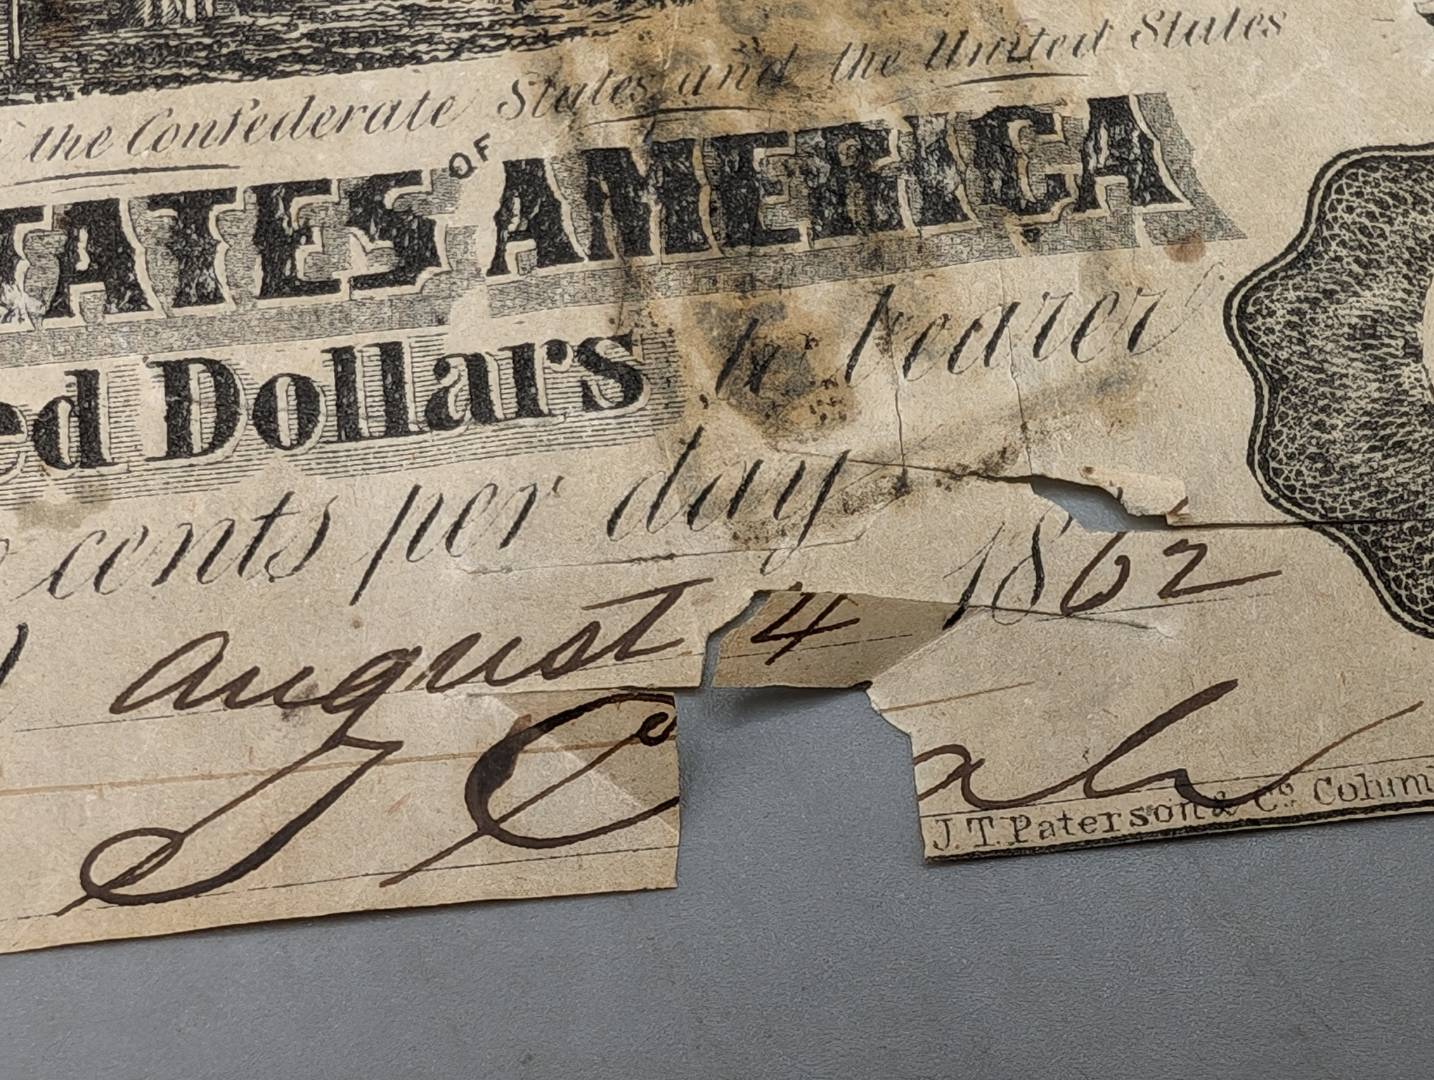 the Confederate States and the United States
TATES OF AMERICA
ed Dollars to bearer
cents per day
august 4 1862
J.T. Paterson & Co Colum